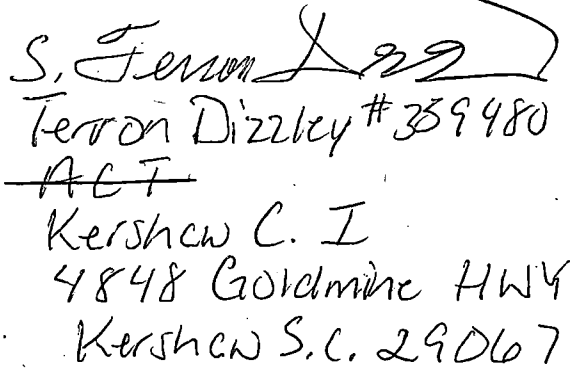 S. Terron Dizz
Terron Dizzley #359480
ACT
Kershaw C. I
4848 Goldmine HWY
Kershaw S.C. 29067